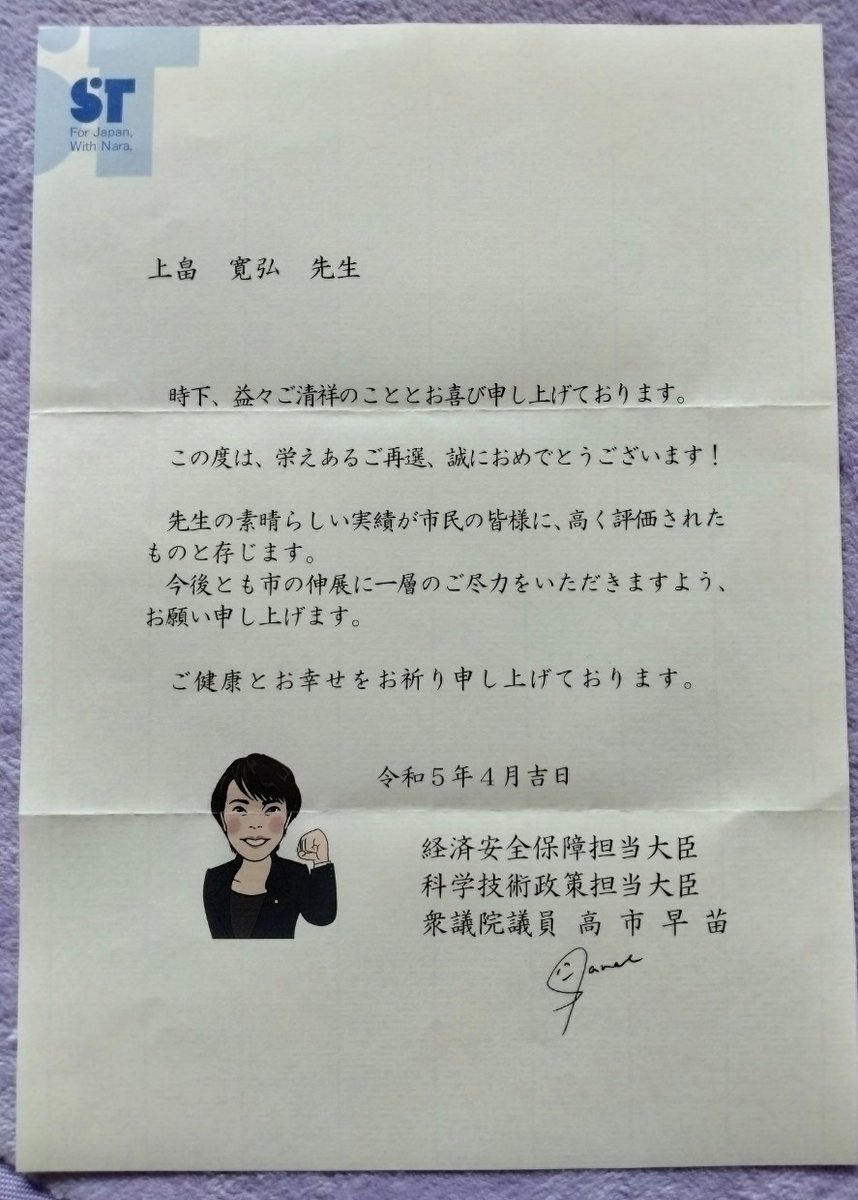 ST
For Japan,
With Nara.
上畠　寛弘　先生
時下、益々ご清祥のこととお喜び申し上げております。
この度は、栄えあるご再選、誠におめでとうございます！
先生の素晴らしい実績が市民の皆様に、高く評価された
ものと存じます。
今後とも市の伸展に一層のご尽力をいただきますよう、
お願い申し上げます。
ご健康とお幸せをお祈り申し上げております。
令和５年４月吉日
経済安全保障担当大臣
科学技術政策担当大臣
衆議院議員 高 市 早 苗